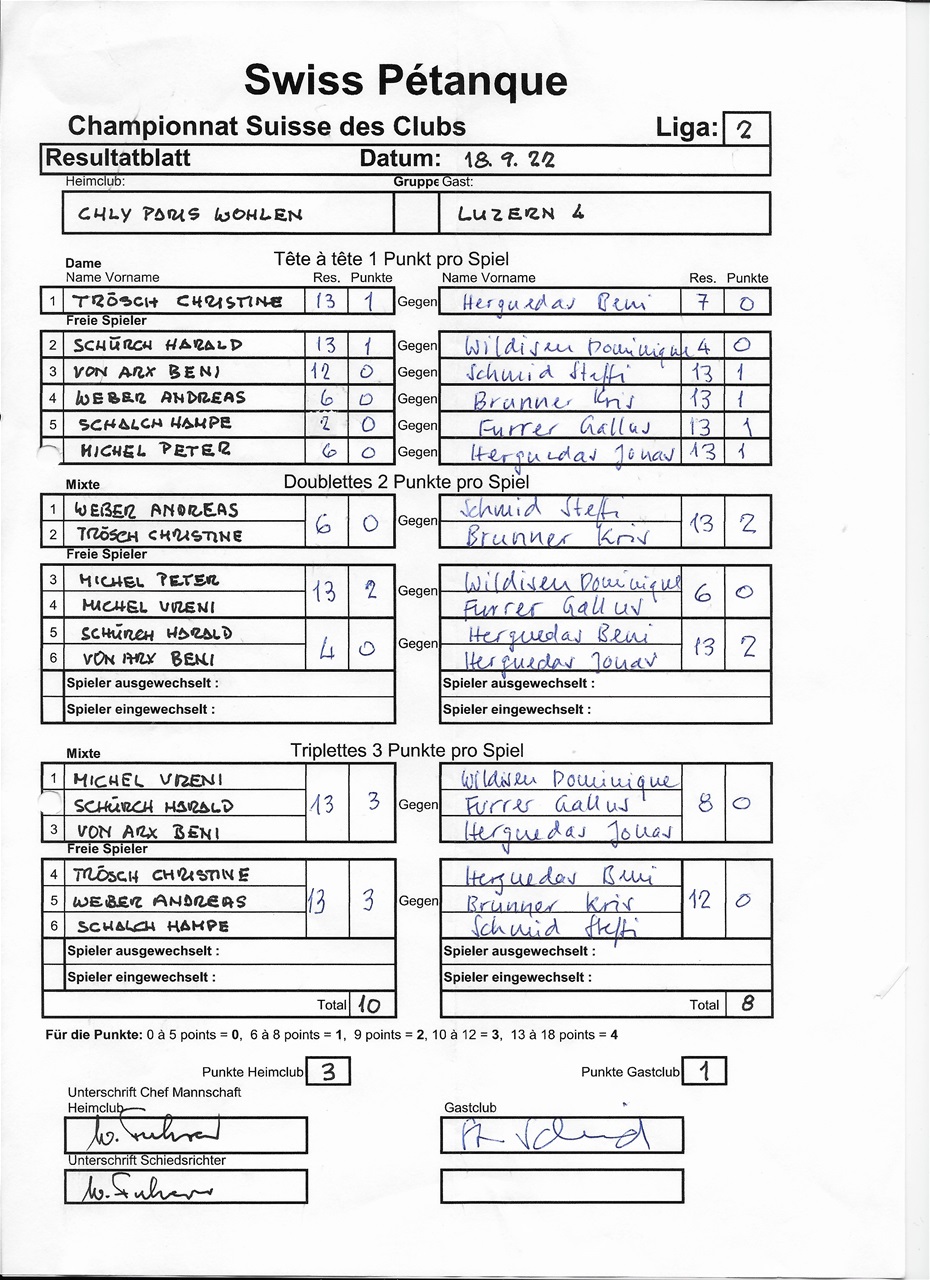 Swiss Pétanque
Championnat Suisse des Clubs Liga: 2
Resultatblatt Datum: 18.9.22
Heimclub: Gruppe Gast:
CHLY PARIS WOHLEN LUZERN 4
Dame Tête à tête 1 Punkt pro Spiel
Name Vorname Res. Punkte Name Vorname Res. Punkte
1 TRÖSCH CHRISTINE 13 1 Gegen Herguedas Beni 7 0
Freie Spieler
2 SCHÜRCH HARALD 13 1 Gegen Wildisen Dominique 4 0
3 VON ARX BENI 12 0 Gegen Schmid Steffi 13 1
4 WEBER ANDREAS 6 0 Gegen Brunner Kris 13 1
5 SCHALCH HAMPE 2 0 Gegen Furrer Gallus 13 1
MICHEL PETER 6 0 Gegen Herguedas Jonas 13 1
Mixte Doublettes 2 Punkte pro Spiel
1 WEBER ANDREAS Schmid Steffi
6 0 Gegen 13 2
2 TRÖSCH CHRISTINE Brunner Kris
Freie Spieler
3 MICHEL PETER Wildisen Dominique
13 2 Gegen 6 0
4 MICHEL VRENI Furrer Gallus
5 SCHÜRCH HARALD Herguedas Beni
4 0 Gegen 13 2
6 VON ARX BENI Herguedas Jonas
Spieler ausgewechselt : Spieler ausgewechselt :
Spieler eingewechselt : Spieler eingewechselt :
Mixte Triplettes 3 Punkte pro Spiel
1 MICHEL VRENI Wildisen Dominique
SCHÜRCH HARALD 13 3 Gegen Furrer Gallus 8 0
3 VON ARX BENI Herguedas Jonas
Freie Spieler
4 TRÖSCH CHRISTINE Herguedas Beni
5 WEBER ANDREAS 13 3 Gegen Brunner Kris 12 0
6 SCHALCH HAMPE Schmid Steffi
Spieler ausgewechselt : Spieler ausgewechselt :
Spieler eingewechselt : Spieler eingewechselt :
Total 10 Total 8
Für die Punkte: 0 à 5 points = 0, 6 à 8 points = 1, 9 points = 2, 10 à 12 = 3, 13 à 18 points = 4
Punkte Heimclub 3 Punkte Gastclub 1
Unterschrift Chef Mannschaft
Heimclub Gastclub
W.
Unterschrift Schiedsrichter
W.